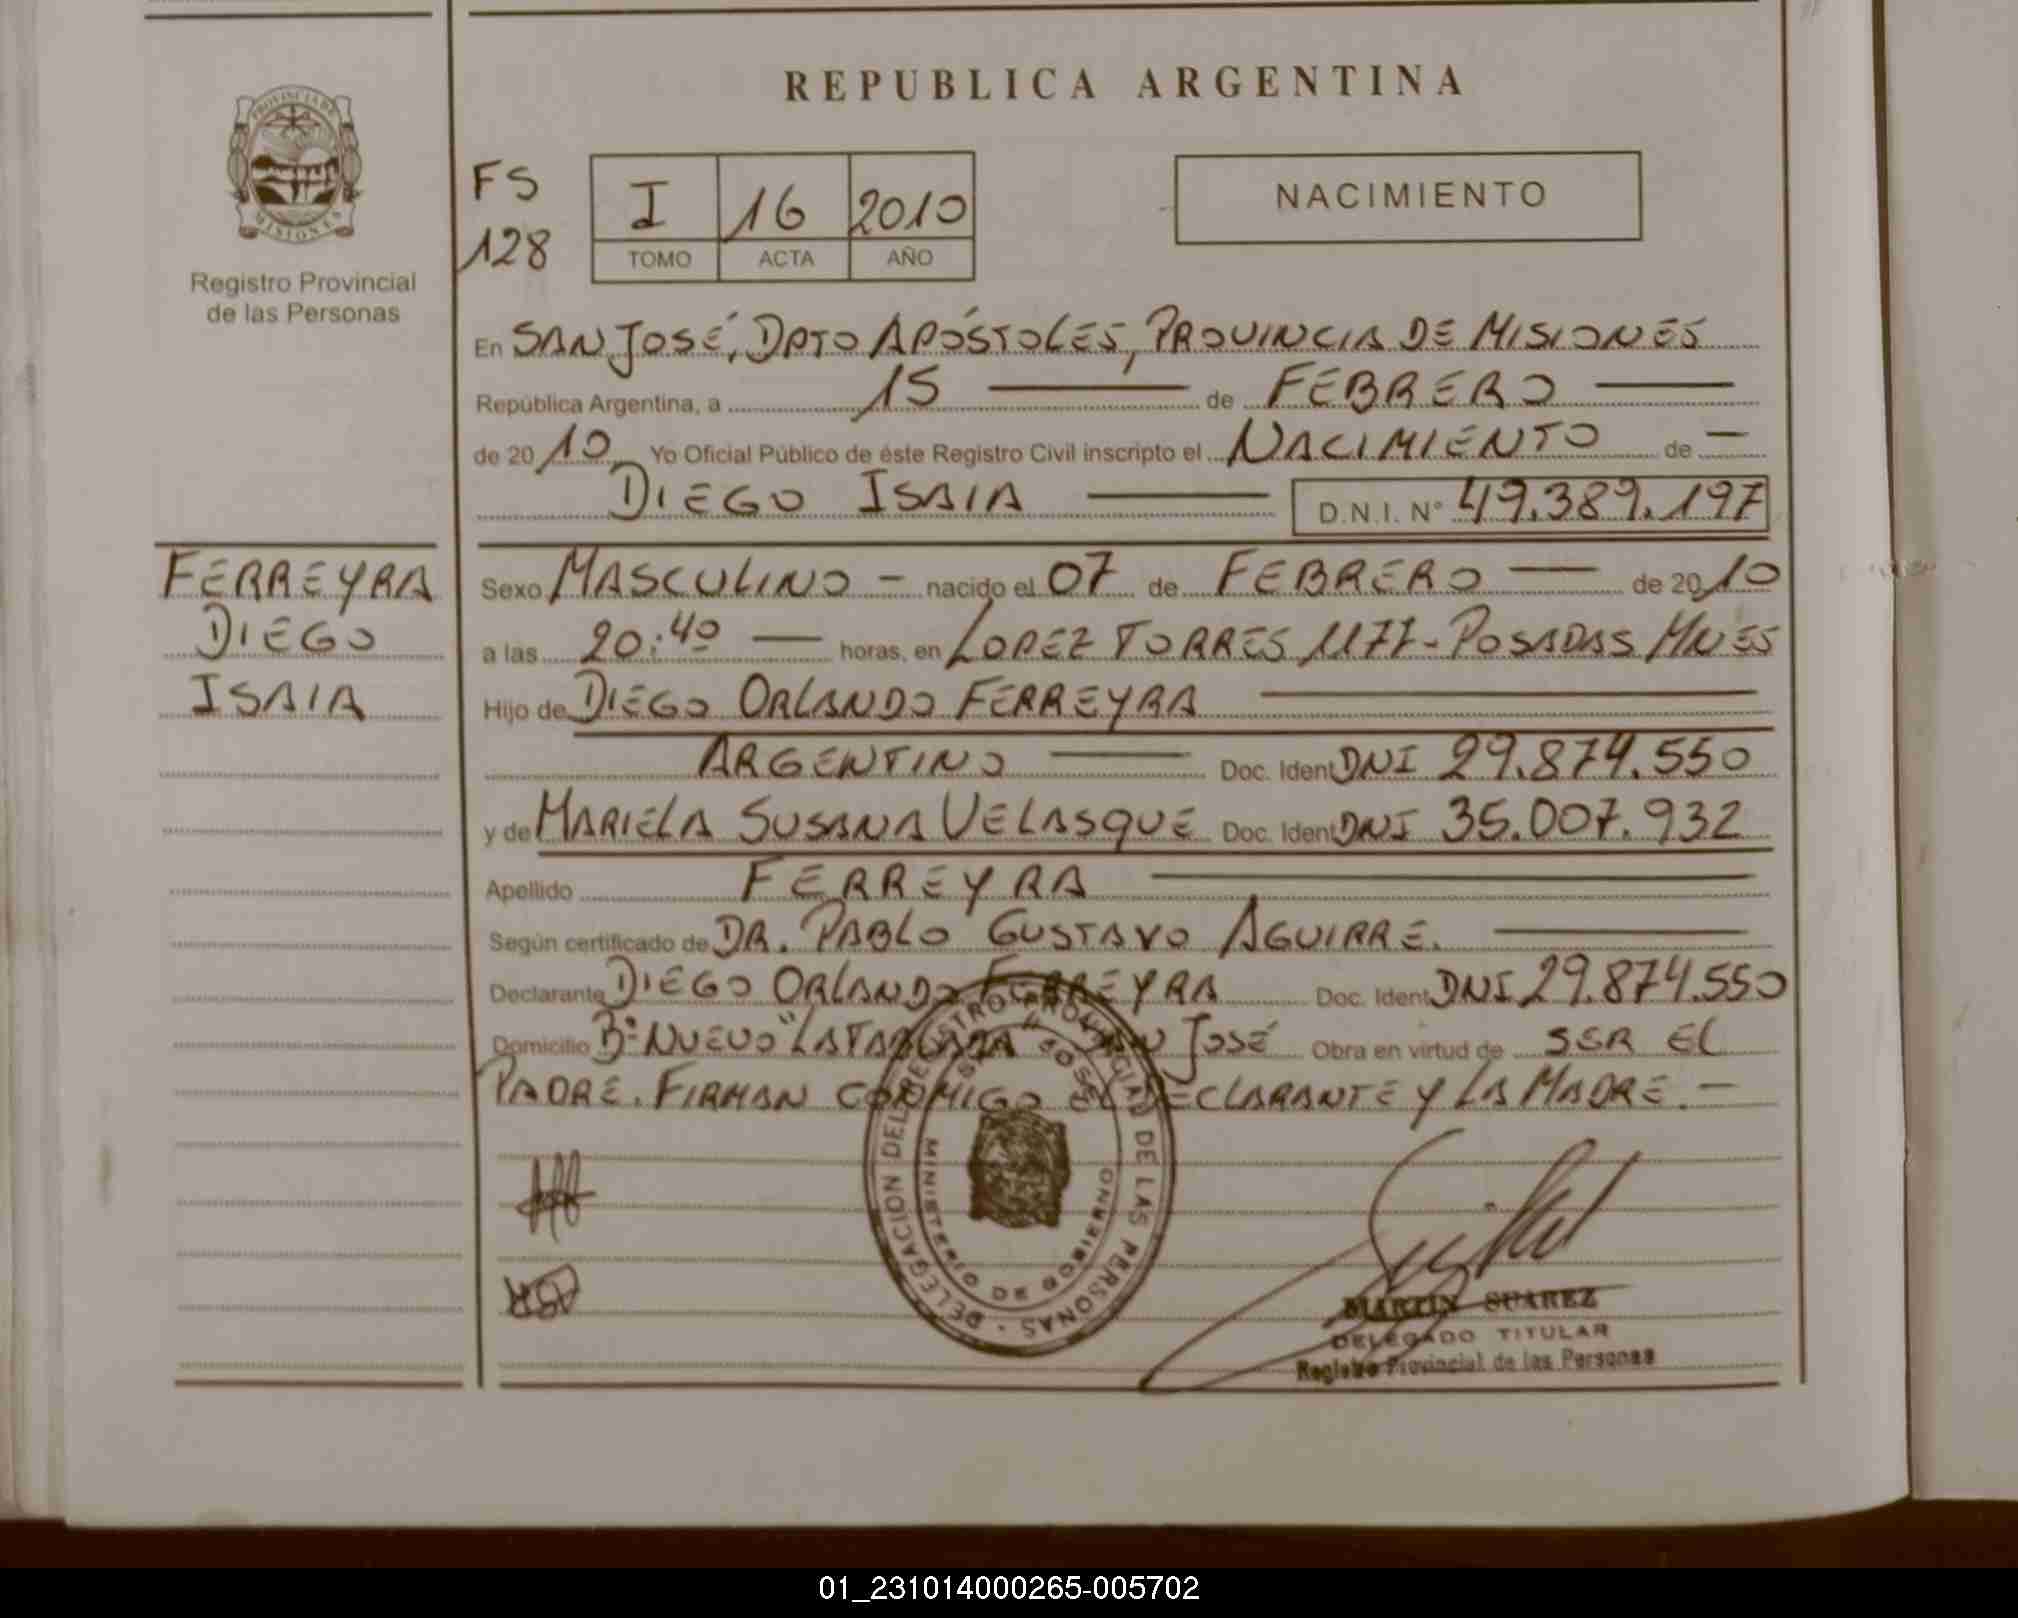 REPUBLICA ARGENTINA
PROVINCIA DE
MISIONES
Registro Provincial
de las Personas
FS
128
I 16 2010
TOMO ACTA AÑO
NACIMIENTO
En SAN JOSÉ, DPTO APÓSTOLES, PROVINCIA DE MISIONES
República Argentina, a 15 de FEBRERO
de 2010 Yo Oficial Público de éste Registro Civil inscripto el NACIMIENTO de
DIEGO ISAIA D.N.I. N° 49.389.197
FERREYRA
DIEGO
ISAIA
Sexo MASCULINO - nacido el 07 de FEBRERO de 2010
a las 20:40 horas, en LOPEZ TORRES 1177 - POSADAS MNES
Hijo de DIEGO ORLANDO FERREYRA
ARGENTINO Doc. Ident DNI 29.874.550
y de MARIELA SUSANA VELASQUE Doc. Ident DNI 35.007.932
Apellido FERREYRA
Según certificado de DR. PABLO GUSTAVO AGUIRRE.
Declarante DIEGO ORLANDO FERREYRA Doc. Ident DNI 29.874.550
Domicilio B° NUEVO SAN JOSÉ Obra en virtud de SER EL
PADRE. FIRMAN CONMIGO EL DECLARANTE Y LA MADRE. -
DELEGACION DEL REGISTRO PROVINCIAL DE LAS PERSONAS
MINISTERIO DE GOBIERNO
MARTIN SUAREZ
DELEGADO TITULAR
Registro Provincial de las Personas
01_231014000265-005702